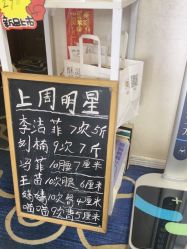 新品上市
上周明星
李洁菲 7次5斤
刘楠 9次7斤
冯菲 10腰7厘米
王苗 10次腿6厘米
婷婷10次臀4厘米
喵喵9次5厘米